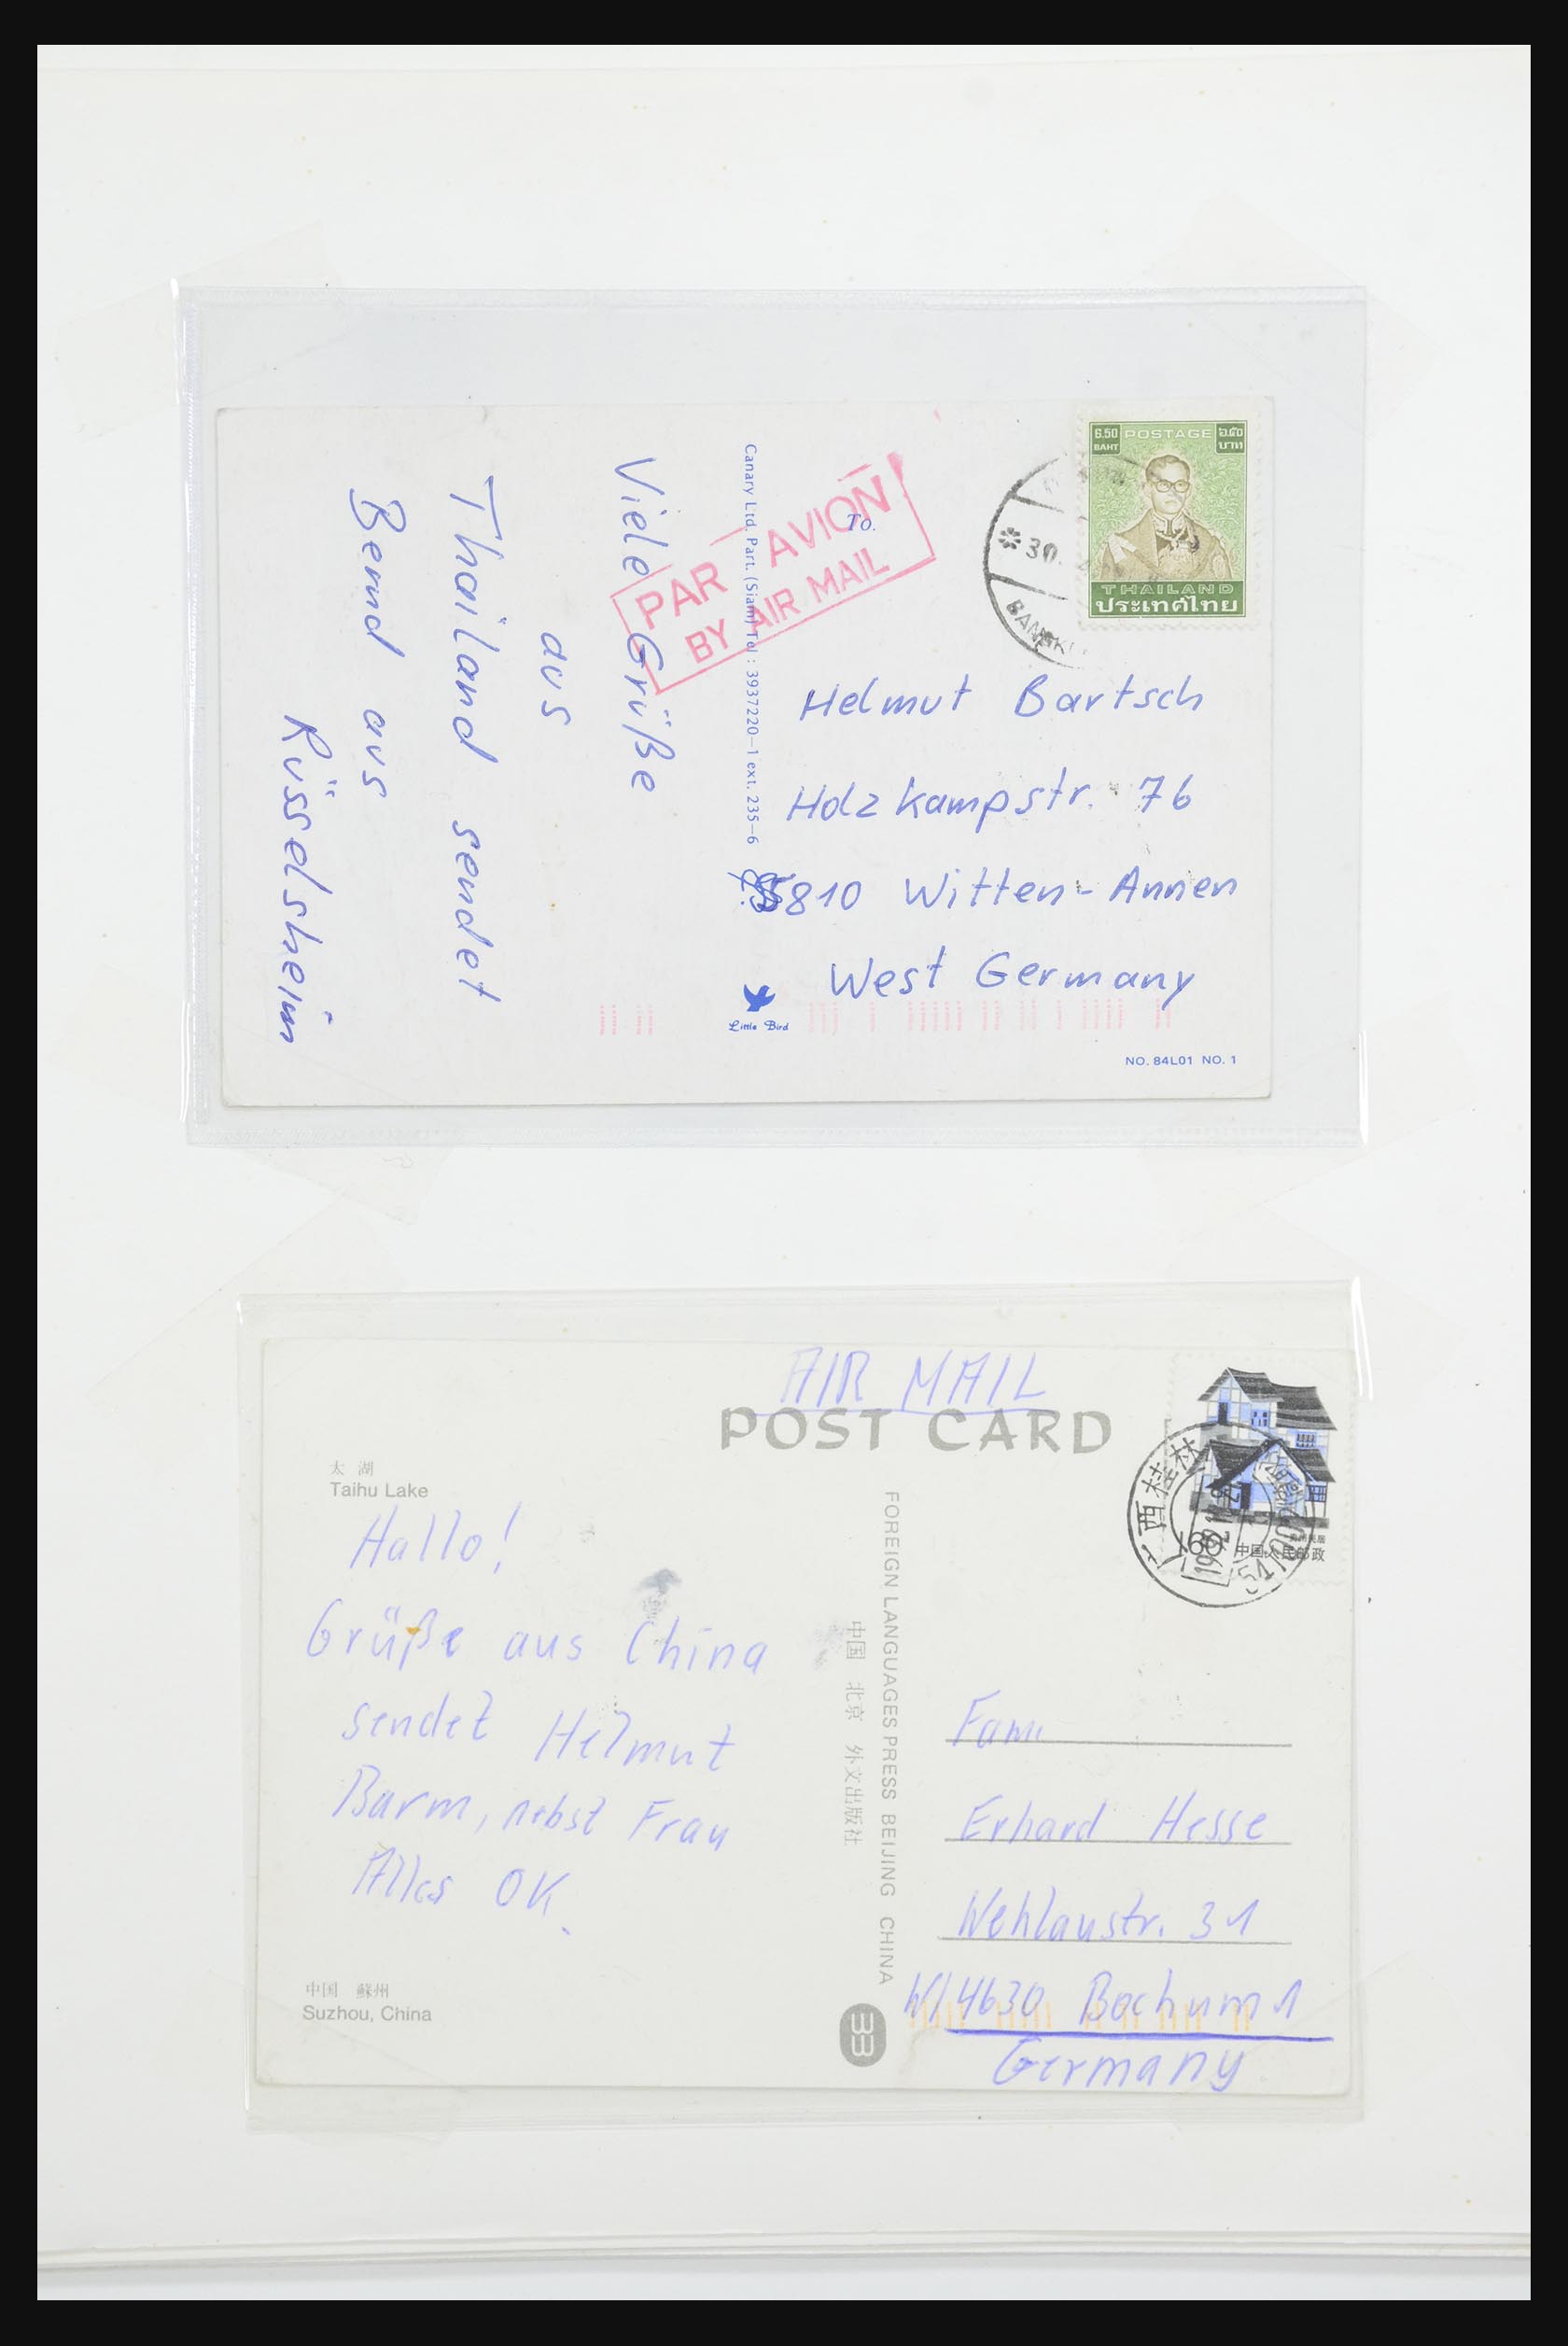 6.50
BAHT
POSTAGE
๖.๕๐
บาท
THAILAND
ประเทศไทย
30.
BANGK
PAR AVION
BY AIR MAIL
To.
Viele Grüße
aus
Thailand sendet
Bernd aus
Rüsselsheim
Canary Ltd. Part. (Siam) Tel : 3937220-1 ext. 235-6
Helmut Bartsch
Holzkampstr. 76
5810 Witten-Annen
West Germany
Little Bird
NO. 84L01 NO. 1
AIR MAIL
POST CARD
太 湖
Taihu Lake
Hallo!
Grüße aus China
sendet Helmut
Barm, nebst Frau
Alles OK.
中国 蘇州
Suzhou, China
FOREIGN LANGUAGES PRESS BEIJING CHINA
中国 北京 外文出版社
广西桂林
60
中国人民邮政
Fam.
Erhard Hesse
Wehlaustr. 31
W/4630 Bochum 1
Germany